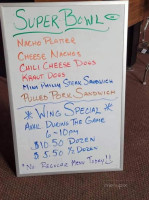 Super Bowl
Nacho Platter
Cheese Nachos
Chili Cheese Dogs
Kraut Dogs
Mini Philly Steak Sandwich
Pulled Pork Sandwich
* Wing Special *
Avail During The Game
6-10pm
$10.50 Dozen
$5.50 ½ Dozen
*No Regular Menu Today!!